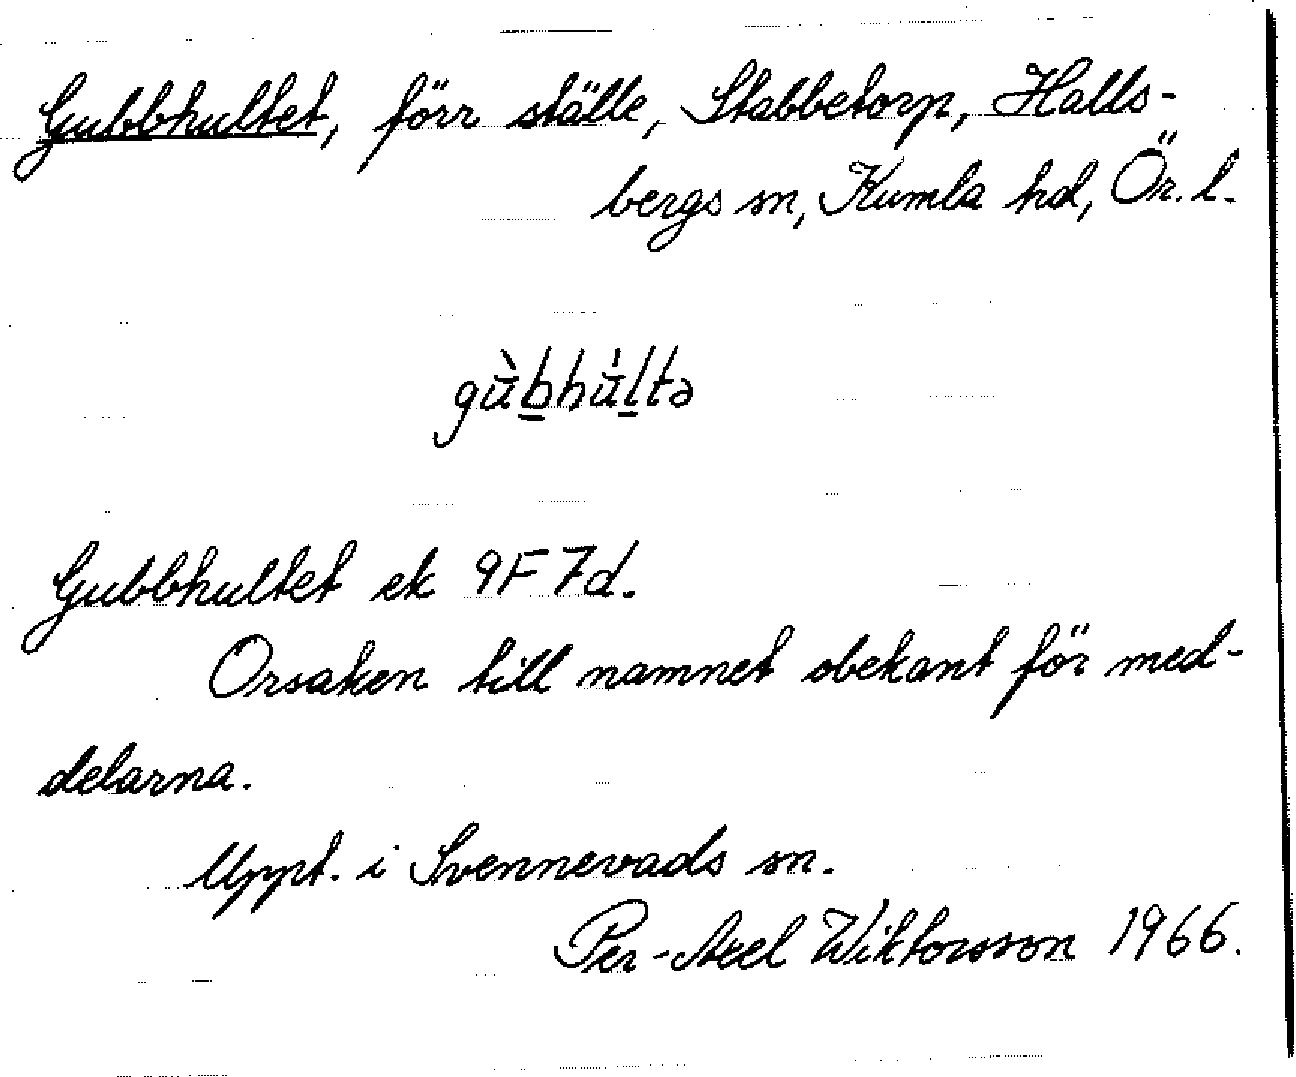 Gubbhultet, förr ställe, Stabbetorp, Halls-
bergs sn, Kumla hd, Ör. l.
gùbhúltə
Gubbhultet ek 9F7d.
Orsaken till namnet obekant för med-
delarna.
Uppt. i Svennevads sn.
Per-Axel Wiktorsson 1966.